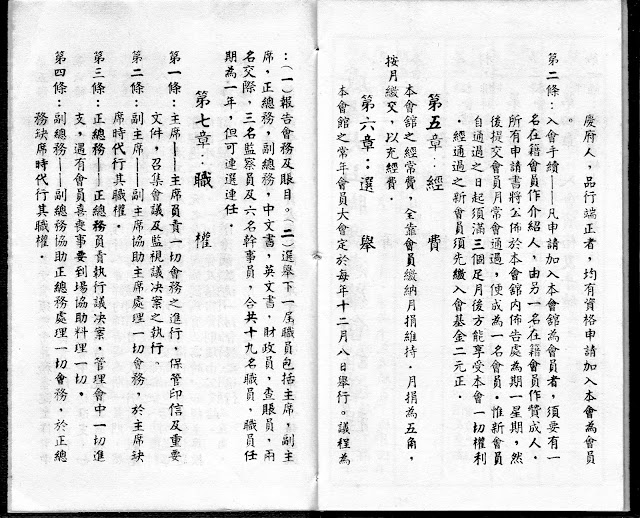 慶府人，品行端正者，均有資格申請加入本會為會員
。
第二條：入會手續——凡申請加入本會館為會員者，須要有一
名在籍會員作介紹人，由另一名在籍會員作贊成人，
所有申請書將公佈於本會館內佈告處為期一星期，然
後提交會員月常會通過，便成為一名會員。惟新會員
自通過之日起須滿三個足月後方能享受本會一切權利
，經通過之新會員須先繳入會基金二元正。
第五章：經費
本會館之經常費，全靠會員繳納月捐維持，月捐為五角，
按月繳交，以充經費。
第六章：選舉
本會館之常年會員大會定於每年十二月八日舉行。議程為
：（一）報告會務及賬目。（二）選舉下一屆職員包括主席，副主
席，正總務，副總務，中文書，英文書，財政員，查賬員，兩
名交際，三名監察員及六名幹事員，合共十九名職員，職員任
期為一年，但可連選連任。
第七章：職權
第一條：主席——主席員責一切會務之進行，保管印信及重要
文件，召集會議及監視議決案之執行。
第二條：副主席——副主席協助主席處理一切會務，於主席缺
席時代行其職權。
第三條：正總務——正總務員責執行議決案，管理會中一切進
支，遇有會員喜喪事要到場協助料理一切。
第四條：副總務——副總務協助正總務處理一切會務，於正總
務缺席時代行其職權。